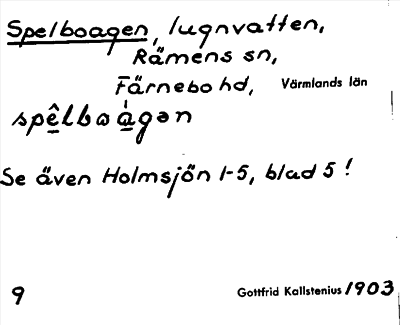 Spelboagen, lugnvatten,
Rämens sn,
Färnebo hd, Värmlands län
spêlbωågən
Se även Holmsjön 1-5, blad 5!
9 Gottfrid Kallstenius 1903